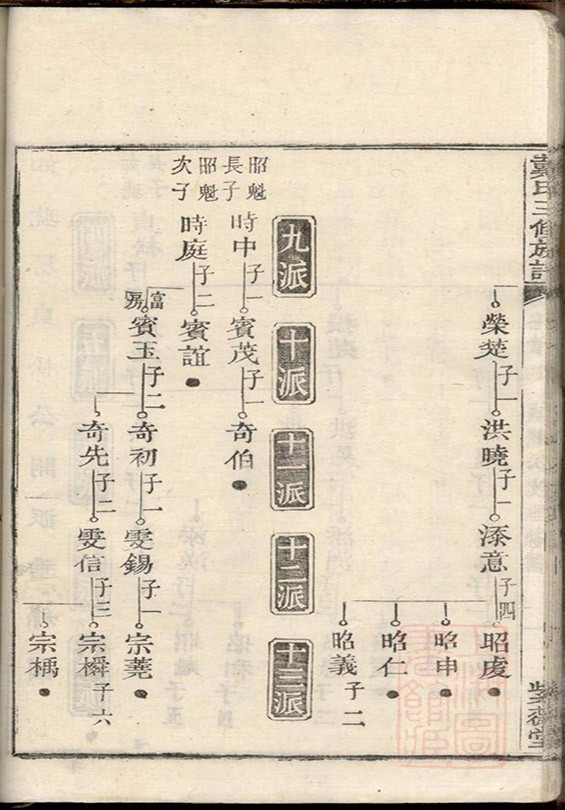 戴氏三修族譜
榮楚 子一
洪曉 子一
添意 子四
昭虔
昭申
昭仁
昭義 子二
九派
十派
十一派
十二派
十三派
昭魁長子
時中 子一
賓茂 子一
奇伯
昭魁次子
時庭 子二
賓誼
富房
賓玉 子二
奇初 子一
雯錫 子一
宗蕘
奇先 子二
雯信 子三
宗橓 子六
宗楀